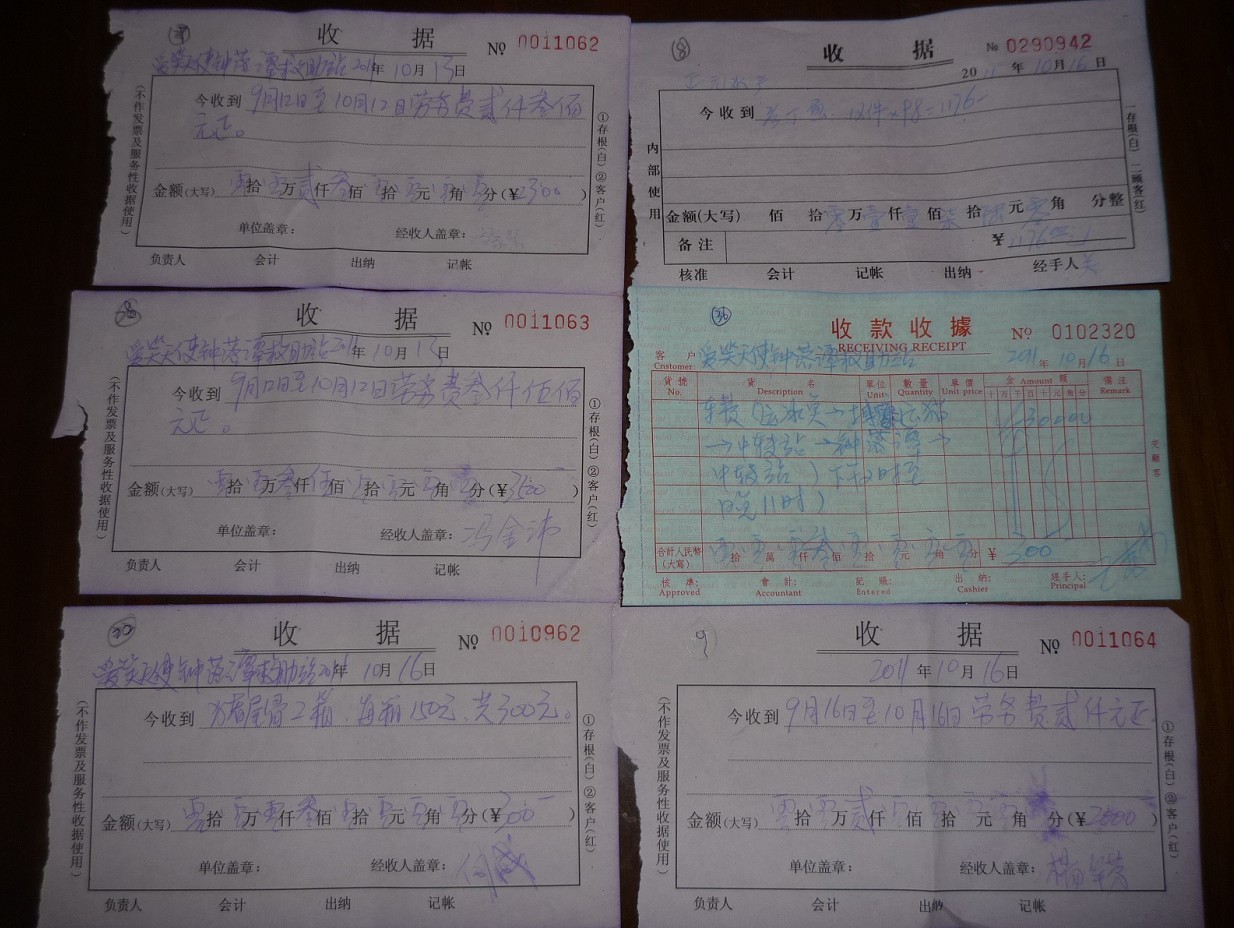 收 据 № 0011062
爱笑天使钟落潭救助站2011年10月13日
今收到 9月12日至10月12日劳务费贰仟叁佰
元正。
金额(大写) 零拾零万贰仟叁佰零拾零元零角零分(¥2300)
单位盖章: 经收人盖章:
负责人 会计 出纳 记帐
(不作发票及服务性收据使用)
①存根(白)②客户(红)
⑧
收 据 № 0290942
2011年10月16日
今收到 12件×98=1176-
内部使用
金额(大写) 佰 拾零万壹仟壹佰柒拾陆元零角 分整
备注 ¥1176
核准 会计 记帐 出纳 经手人
一存根(白) 二顾客(红)
收 据 № 0011063
爱笑天使钟落潭救助站2011年10月13日
今收到 9月12日至10月12日劳务费叁仟伍佰
元正。
金额(大写) 零拾零万叁仟伍佰零拾零元零角零分(¥3500)
单位盖章: 经收人盖章: 冯金沛
负责人 会计 出纳 记帐
(不作发票及服务性收据使用)
①存根(白)②客户(红)
㊱
收款收據 № 0102320
RECEIVING RECEIPT
客户 Cnstomer 爱笑天使钟落潭救助站 2011年10月16日
貨號 No. 貨名 Description 單位 Unit 數量 Quantity 單價 Unit price 金 Amount 額 備注 Remark
十万千百十元角分
车费 30000
→中转站→钟落潭→
中转站)下午2时至
晚11时)
合計人民幣(大寫) 零拾零萬零仟叁佰零拾零元零角零分 ¥300
核準: Approved 會計: Accountant 記賬: Entered 出納: Cashier 經手人: Principal
交顧客
收 据 № 0010962
爱笑天使钟落潭救助站2011年10月16日
今收到 2箱、每箱150元、共300元。
金额(大写) 零拾零万零仟叁佰零拾零元零角零分(¥300)
单位盖章: 经收人盖章:
负责人 会计 出纳 记帐
(不作发票及服务性收据使用)
①存根(白)②客户(红)
9
收 据 № 0011064
2011年10月16日
今收到 9月16日至10月16日劳务费贰仟元正.
金额(大写) 零拾零万贰仟零佰零拾零元 角 分(¥2000)
单位盖章: 经收人盖章:
负责人 会计 出纳 记帐
(不作发票及服务性收据使用)
①存根(白)②客户(红)